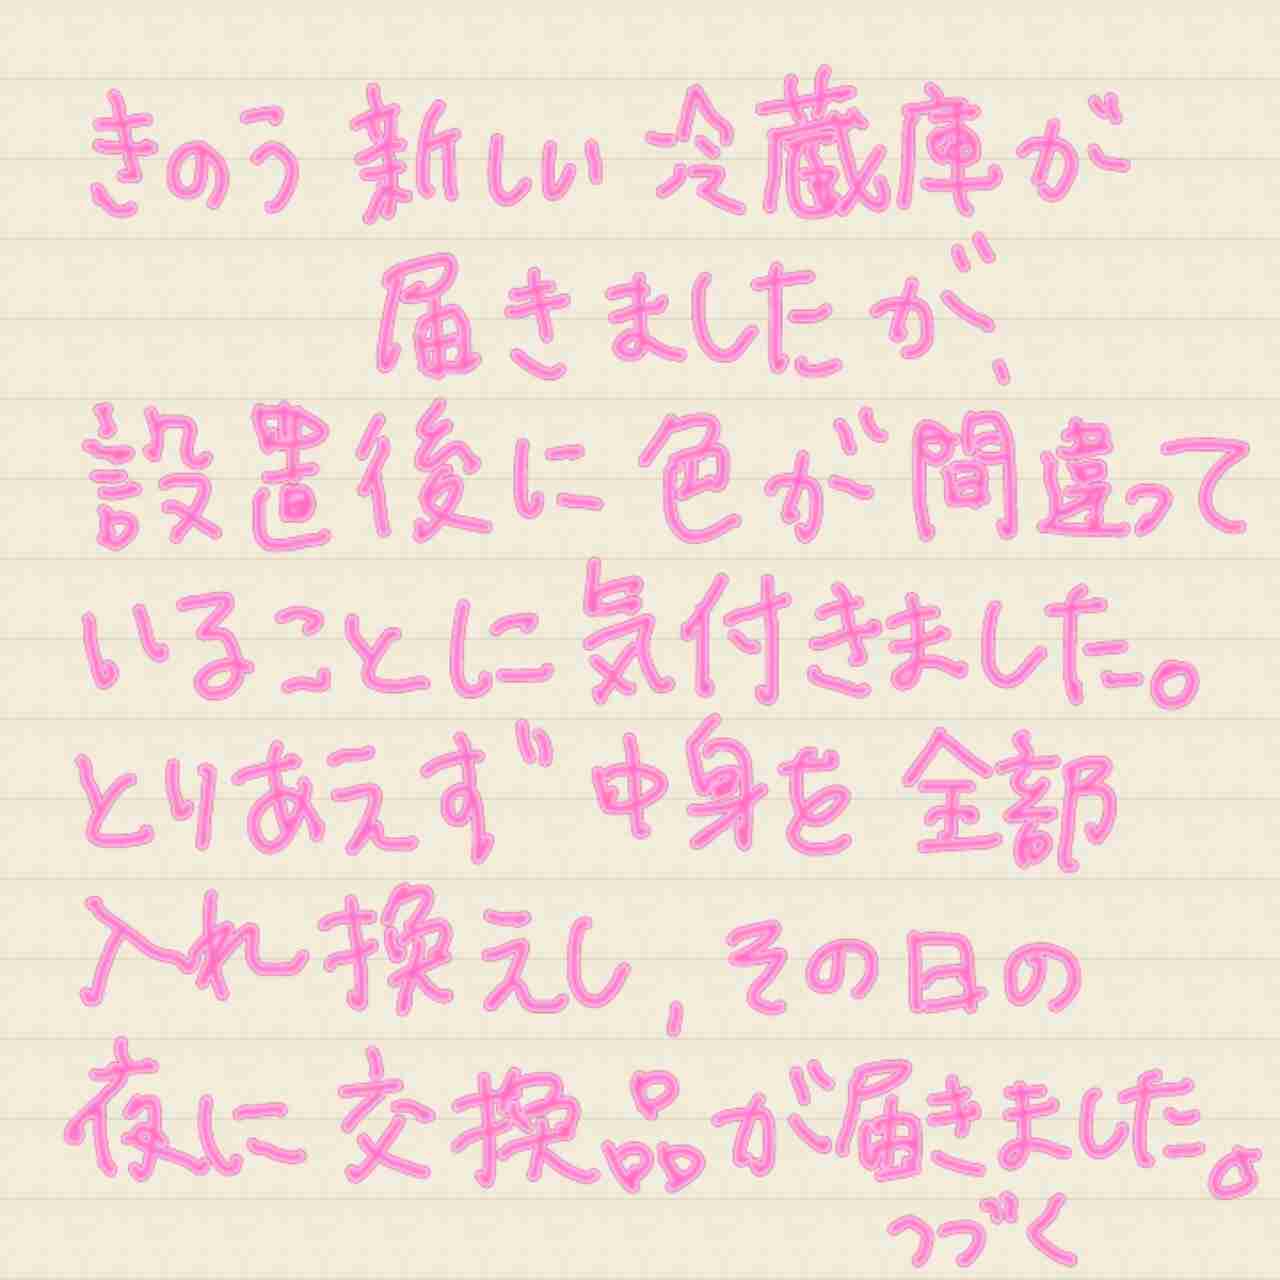 きのう新しい冷蔵庫が
届きましたが、
設置後に色が間違って
いることに気付きました。
とりあえず中身を全部
入れ換えし、その日の
夜に交換品が届きました。
つづく